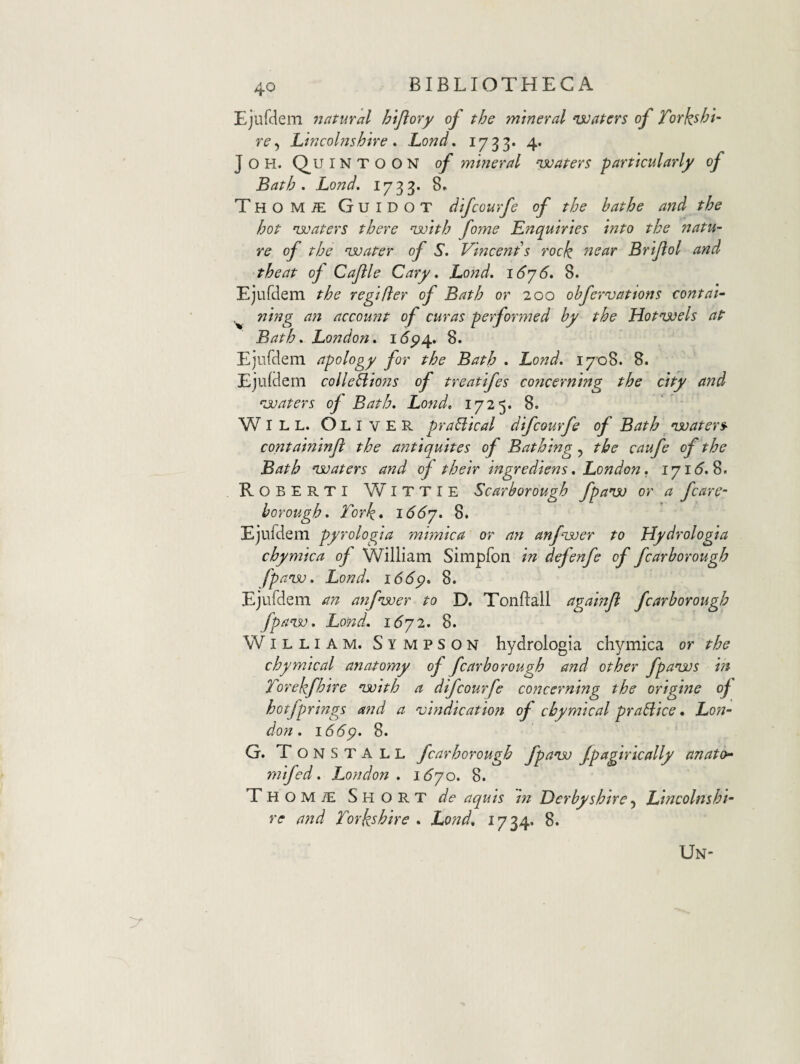 40 BIBLIOTHECA
Ejuſdem natural hiſtory of the mineral waters of Yorkshi-
re, Lincolnshire. Lond. 1733. 4.
JOH. QUINTOON of mineral waters particularly of
Bath. Lond. 1733. 8.
THOMÆ GUIDOT diſcourſe of the bathe and the
hot waters there with ſome Enquiries into the natu-
re of the water of S. Vincent's rock near Briſtol and
theat of Caſtle Cary. Lond. 1676. 8.
Ejuſdem the regiſter of Bath or 200 obſervations contai-
ning an account of curas performed by the Hotwels at
Bath. London. 1694. 8.
Ejuſdem apology for the Bath. Lond. 1708. 8.
Ejuſdem collections of treatiſes concerning the city and
waters of Bath. Lond. 1725. 8.
WILL. OLIVER practical diſcourſe of Bath waters
containinſt the antiquites of Bathing, the cauſe of the
Bath waters and of their ingrediens. London. 1716. 8.
ROBERTI WITTIE Scarborough ſpaw or a ſcare-
borough. York. 1667. 8.
Ejuſdem pyrologia mimica or an anſwer to Hydrologia
chymica of William Simpſon in defenſe of ſcarborough
ſpaw. Lond. 1669. 8.
Ejuſdem an anſwer to D. Tonſtall againſt ſcarborough
ſpaw. Lond. 1672. 8.
WILLIAM. SYMPSON hydrologia chymica or the
chymical anatomy of ſcarborough and other ſpaws in
Yorekſhire with a diſcourſe concerning the origine of
hotſprings and a vindication of chymical practice. Lon-
don. 1669. 8.
G. TONSTALL ſcarborough ſpaw ſpagirically anato-
miſed. London. 1670. 8.
THOMÆ SHORT de aquis in Derbyshire, Lincolnshi-
re and Yorkshire. Lond. 1734. 8.
UN-